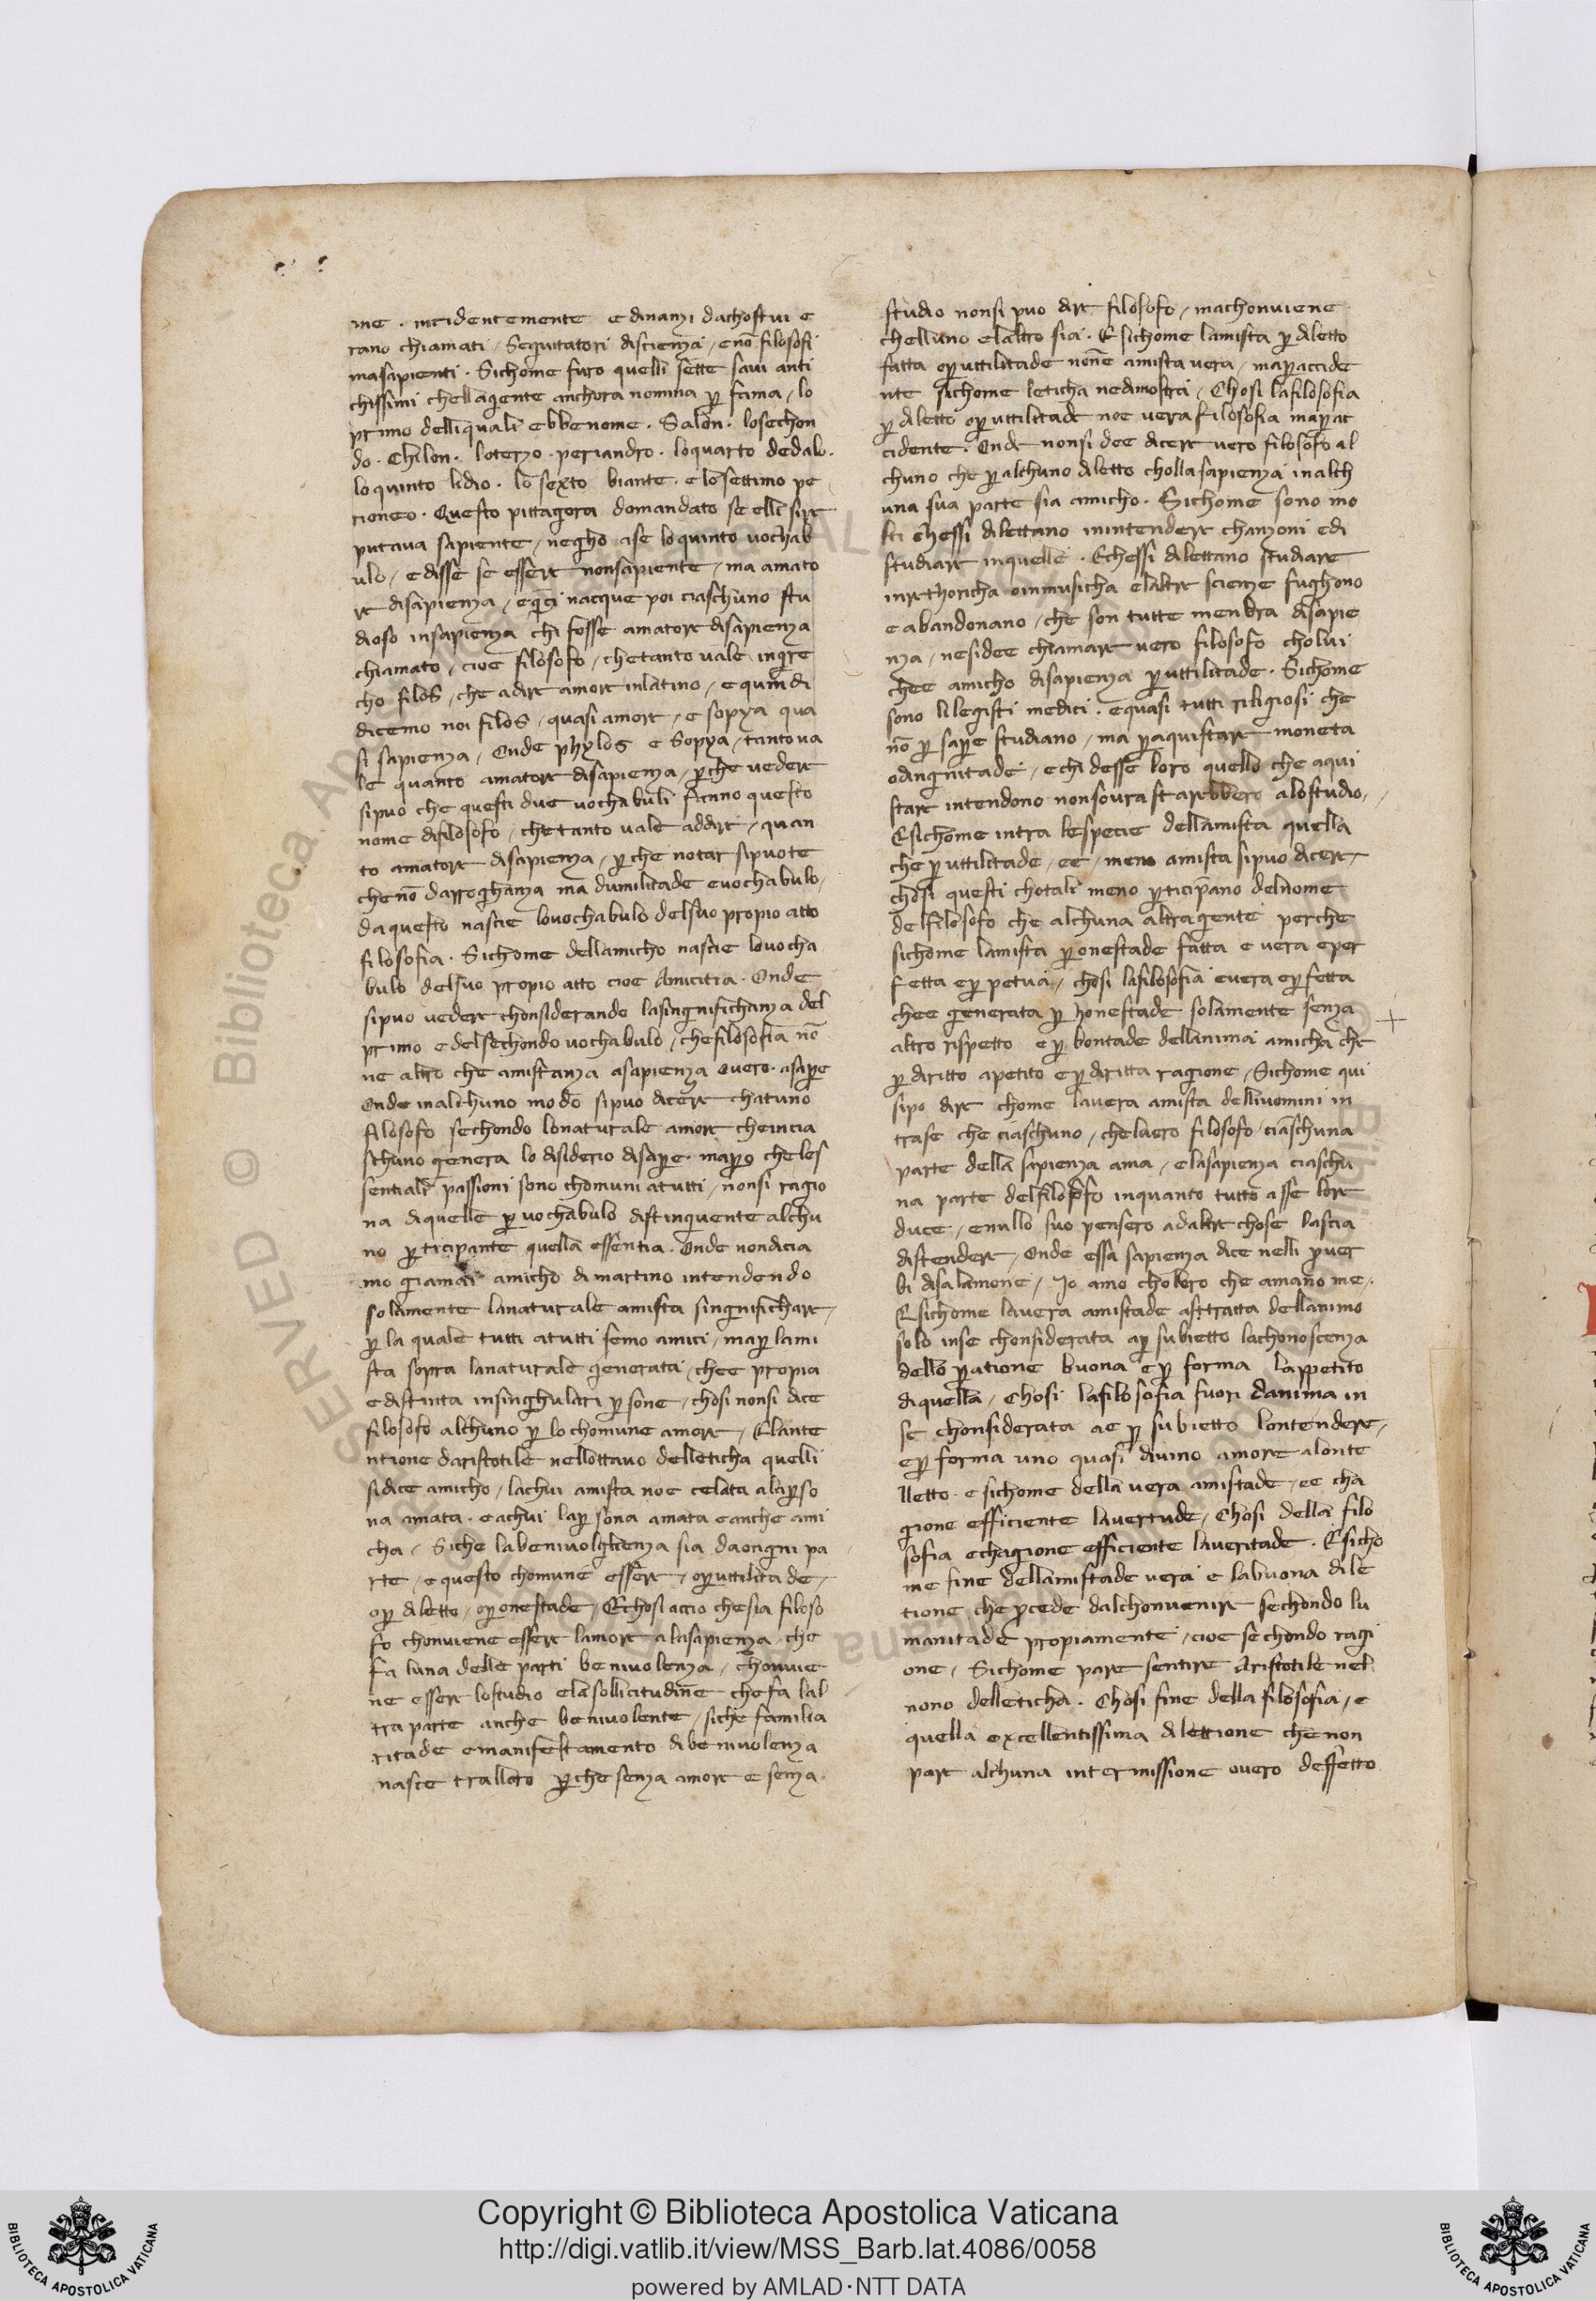 me . incidentemente e dinanzi dachostui e
rano chiamati / Sequitatori discienza / e nō filosofi
masapienti . Sichome furo quelli sette savi anti
chissimi chellagente anchora nomina p̱ fama / lo
primo delliquali ebbe nome . Salon . losechon
do . Chilon . loterzo . periandro . loquarto dedalo .
lo quinto lidio . lo sexto biante . e lo settimo pe
rioneo . Questo pittagora domandato se elli sire
putava sapiente / negho ase lo quinto vochab
ulo / e disse se essere nonsapiente / ma amato
re disapienza / e q̄ci nacque poi ciaschuno stu
dioso insapienza chi fosse amatore disapienza
chiamato / cioe filosofo / chetanto vale ingre
cho filos / che adire amore inlatino / e quindi
dicemo noi filos / quasi amore / e sopya qua
si sapienza / Onde phylos e Sopya / tantova
le quanto amatore disapienza / p̱che vedere
sipuo che questi due vochabuli fanno questo
nome difilosofo / chetanto vale addire / quan
to amatore disapienza / p̱che notar sipuote
chenō darroghanza ma dumilitade evochabulo /
daquesto nascie lovochabulo delsuo propio atto
filosofia . Sichome dellamicho nascie lovocha
bulo delsuo propio atto cioe Amicitia . Onde
sipuo vedere chonsiderando lasingnifichanza del
primo e delsechondo vochabulo / chefilosofia nō
ne altro che amistanza asapienza overo . asape
Onde inalchuno modo sipuo dicere chatuno
filosofo sechondo lonaturale amore cheincia
schuno genera lo disiderio disape . map̱o cheles
sentiali passioni sono chomuni atutti / nonsi ragio
na diquelle p̱ vochabulo distinguente alchu
no p̱ticipante quella essentia . Onde nondicia
mo giamai amicho di martino intendendo
solamente lanaturale amista singnifichare /
p̱ la quale tutti atutti semo amici / map̱ lami
sta sopra lanaturale generata / chee propia
e distinta insinghulari p̱sone / chosi nonsi dice
filosofo alchuno p̱ lo chomune amore / Elante
ntione daristotile nellottavo delleticha quelli
sidice amicho / lachui amista noe celata alap̱so
na amata . e achui lap̱sona amata e anche ami
cha / Siche labenivolgienza sia daongni pa
rte / e questo chomune essere / op̱ uttilitade /
op̱ diletto / op̱ onestade / Echosi accio chesia filoso
fo chonviene essere lamore alasapienza / che
fa luna delle parti benivolenza / chonvie
ne essere lostudio ela sollicitudine chefa lal
tra parte anche benivolente / siche familia
ritade emanifestamento dibenivolenza
nasce tralloro p̱che senza amore e senza
studio nonsi puo dire filosofo / machonviene
chelluno elaltro sia . E sichome lamista p̱ diletto
fatta op̱ uttilitade nonē amista vera / map̱ accide
nte sichome leticha nedimostra / Chosi lafilosofia
p̱ diletto op̱ uttilitade noe vera filosofia map̱ ac
cidente . Onde nonsi dee dicere vero filosofo al
chuno che p̱ alchuno diletto cholla sapienza inalch
una sua parte sia amicho . Sichome sono mo
lti chessi dilettano inintendere chanzoni edi
studiare inquelle . Echessi dilettano studiare
inrethoricha oinmusicha elaltre scienze fughono
e abandonano / che son tutte menbra disapie
nza / nesidee chiamare vero filosofo cholui
chee amicho disapienza p̱ uttilitade . Sichome
sono lilegisti medici . equasi tutti riligiosi che
nō p̱ sape studiano / ma p̱aquistare moneta
odingnitade / echi desse loro quello che aqui
stare intendono nonsovrastarebbero alostudio /
Esichome intra lespecie dellamista quella
che p̱ uttilitade / ee / meno amista sipuo dicere /
chosi questi chotali meno p̱ticipano delnome
delfilosofo che alchuna altragente perche
sichome lamista p̱ onestade fatta e vera e per
fetta ep̱ petua / chosi lafilosofia evera ep̱fetta
chee generata p̱ honestade solamente senza
altro rispetto e p̱ bontade dellanima amicha che
p̱ diritto apetito ep̱ diritta ragione / Sichome qui
sipo dire chome lavera amista delliuomini in
trase che ciaschuno / chelvero filosofo ciaschuna
parte della sapienza ama / elasapienza ciaschu
na parte delfilosofo inquanto tutto asse lore
duce / enullo suo pensero adaltre chose lascia
distendere / Onde essa sapienza dice nelli p̱ver
bi disalamone / Io amo choloro che amano me /
Esichome lavera amistade asttratta dellanimo
solo inse chonsiderata ap̱ subietto lachonoscenza
dello p̱atione buona e p̱ forma lappetito
diquella / Chosi lafilosofia fuori danima in
se chonsiderata ae p̱ subietto lontendere /
ep̱ forma uno quasi divino amore alonte
lletto . e sichome della vera amistade / ee cha
gione efficiente lavertude / Chosi della filo
sofia echagione efficiente laveritade . Esicho
me fine dellamistade vera e labuona dile
tione che p̱cede dalchonvenire sechondo lu
manitade propiamente / cioe sechondo ragi
one / Sichome pare sentire Aristotile nel
nono delleticha . Chosi fine della filosofia / e
quella excellentissima dilettione che non
pare alchuna intermissione overo deffetto
Copyright © Biblioteca Apostolica Vaticana
http://digi.vatlib.it/view/MSS_Barb.lat.4086/0058
powered by AMLAD·NTT DATA
BIBLIOTECA APOSTOLICA VATICANA
BIBLIOTECA APOSTOLICA VATICANA